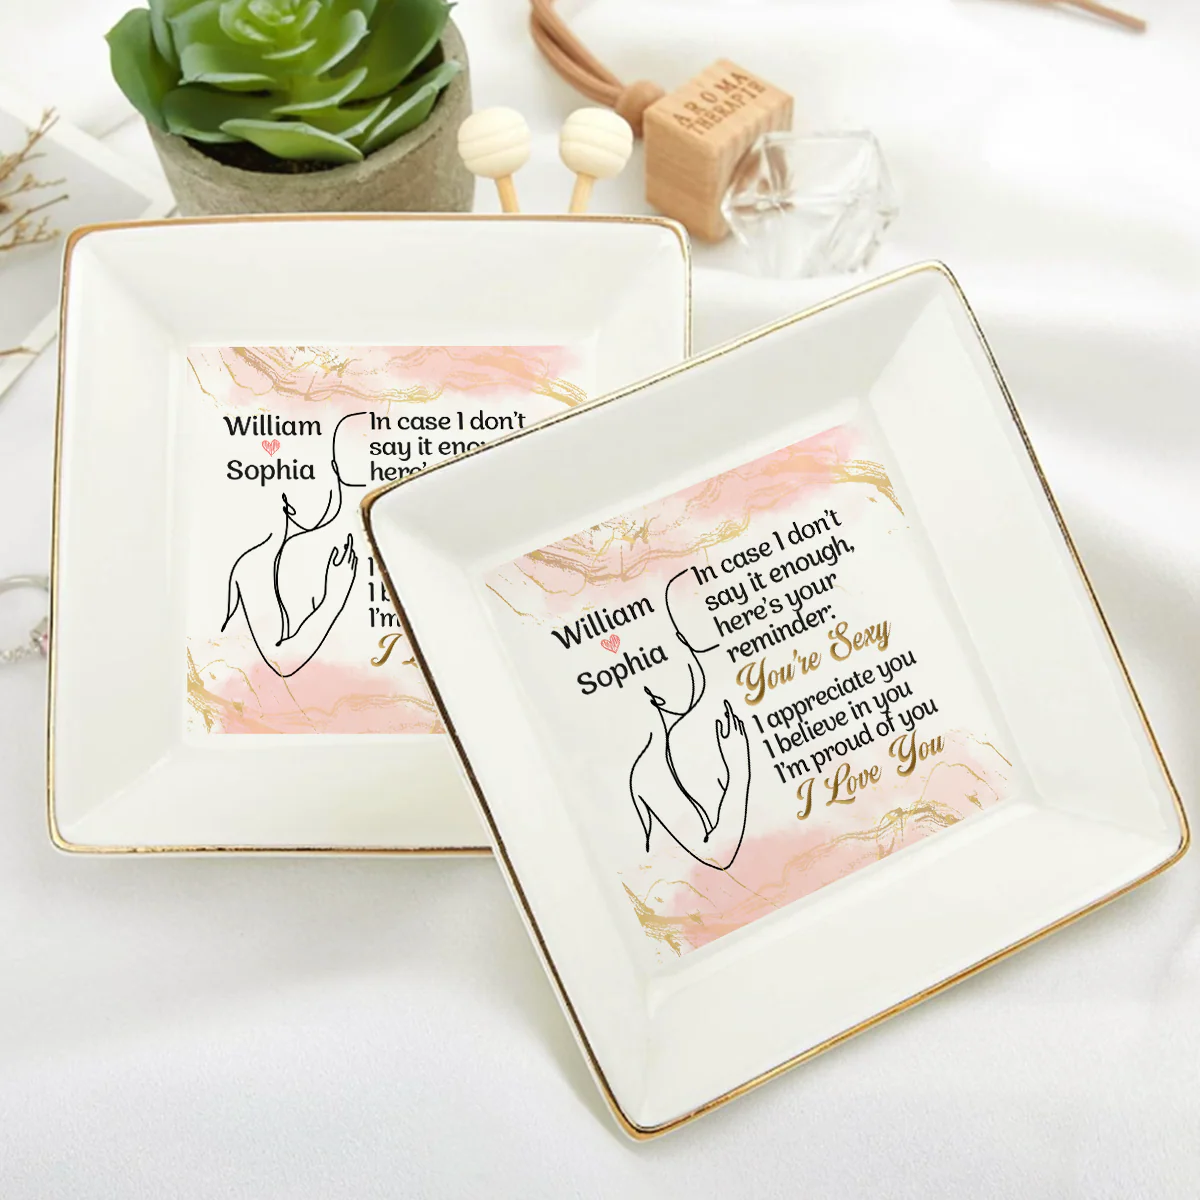 AROMA
THERAPIE
William
Sophia
In case I don't
say it
I'm
William
Sophia
In case I don't
say it enough,
here's your
reminder:
You're Sexy
I appreciate you
I believe in you
I'm proud of you
I Love You